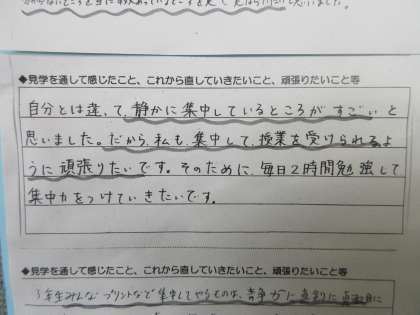 ◆見学を通して感じたこと、これから直していきたいこと、頑張りたいこと等
自分とは違って、静かに集中しているところがすごいと
思いました。だから、私も、集中して、授業を受けられるよ
うに頑張りたいです。そのために、毎日2時間勉強して
集中力をつけていきたいです。
◆見学を通して感じたこと、これから直していきたいこと、頑張りたいこと等
3年生みんな プリントなど集中してやるものは、